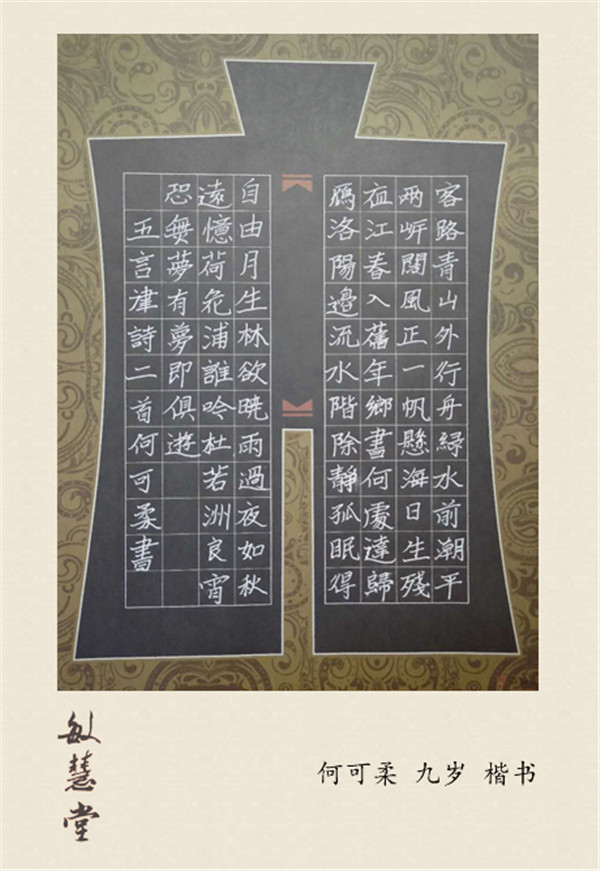 客路青山外行舟綠水前潮平
兩岸闊風正一帆懸海日生殘
夜江春入舊年鄉書何處達歸
鴈洛陽邊流水階除靜孤眠得
自由月生林欲曉雨過夜如秋
遠憶荷花浦誰吟杜若洲良宵
恐無夢有夢即俱遊
五言律詩二首何可柔書
敏慧堂
何可柔 九岁 楷书